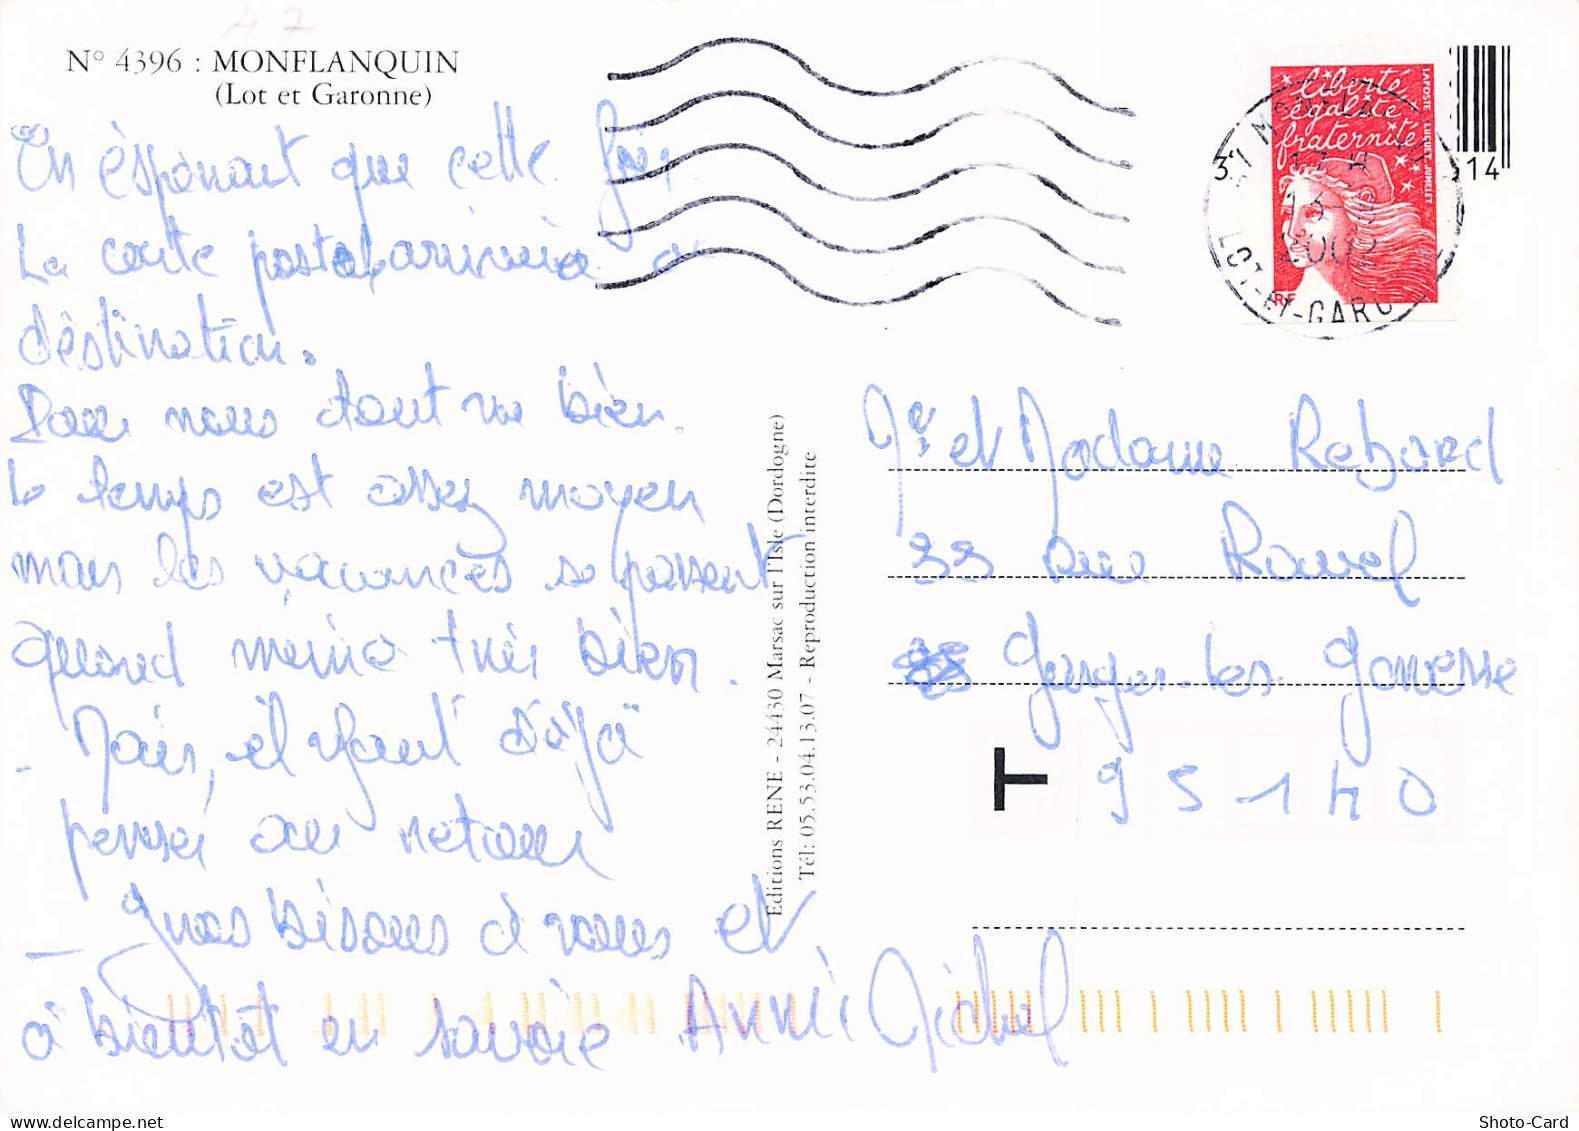 47
N° 4396 : MONFLANQUIN
(Lot et Garonne)
En èsperant que cette fois
La carte postal arrivera a
dèstination.
Pour nous tout va bien.
Le temps est assez moyen
mais les vacances se passent
quand même très bien.
Mais, il faut dèjà
penser au retour
gros bisous à vous et
à bientôt en savoie Annie Michel
Editions RENE - 24430 Marsac sur l'Isle (Dordogne)
Tél: 05.53.04.13.07 - Reproduction interdite
liberté
égalité
fraternité
LA POSTE LUQUET-JUMELET
RF
2002
LOT-ET-GARO
3
14
Mr et Madame Rebard
33 rue Ravel
Garges-les Gonesse
T 95140
Shoto-Card